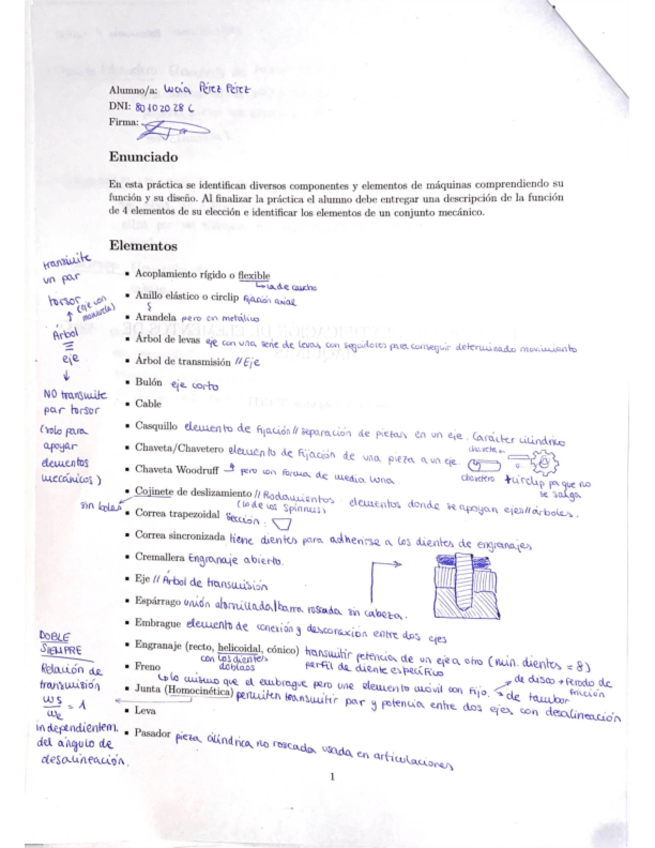 Alumno/a: Lucía Pérez Pérez
DNI: 80102028C
Firma:
Enunciado
En esta práctica se identifican diversos componentes y elementos de máquinas comprendiendo su
función y su diseño. Al finalizar la práctica el alumno debe entregar una descripción de la función
de 4 elementos de su elección e identificar los elementos de un conjunto mecánico.
Elementos
transmite
un par
torsor (eje con
manivela)
Árbol
≡
eje
↓
NO transmite
par torsor
(solo para
apoyar
elementos
mecánicos)
▪ Acoplamiento rígido o flexible
↳ la de caucho
▪ Anillo elástico o circlip fijación axial
▪ Arandela pero en metálico
▪ Árbol de levas eje con una serie de levas, con seguidores para conseguir determinado movimiento
▪ Árbol de transmisión // Eje
▪ Bulón eje corto
▪ Cable
▪ Casquillo elemento de fijación // separación de piezas en un eje. Carácter cilíndrico
▪ Chaveta/Chavetero elemento de fijación de una pieza a un eje.
chaveta
chavetero
+ circlip pa que no
se salga
▪ Chaveta Woodruff → pero con forma de media luna
▪ Cojinete de deslizamiento // Rodamientos elementos donde se apoyan ejes//árboles.
sin bolas
(lo de los Spinners)
▪ Correa trapezoidal Sección:
▪ Correa sincronizada tiene dientes para adherirse a los dientes de engranajes
▪ Cremallera Engranaje abierto.
▪ Eje // Árbol de transmisión
▪ Espárrago unión atornillada/barra roscada sin cabeza.
▪ Embrague elemento de conexión y desconexión entre dos ejes
▪ Engranaje (recto, helicoidal, cónico) transmitir potencia de un eje a otro (min. dientes = 8)
con los dientes
doblaos
perfil de diente específico
▪ Freno
↳ lo mismo que el embrague pero une elemento móvil con fijo.
de disco + Ferodo de
fricción
de tambor
▪ Junta (Homocinética) permiten transmitir par y potencia entre dos ejes con desalineación
▪ Leva
▪ Pasador pieza cilíndrica no roscada usada en articulaciones
DOBLE
SIEMPRE
Relación de
transmisión
ws/we = 1
independientem.
del ángulo de
desalineación.
1